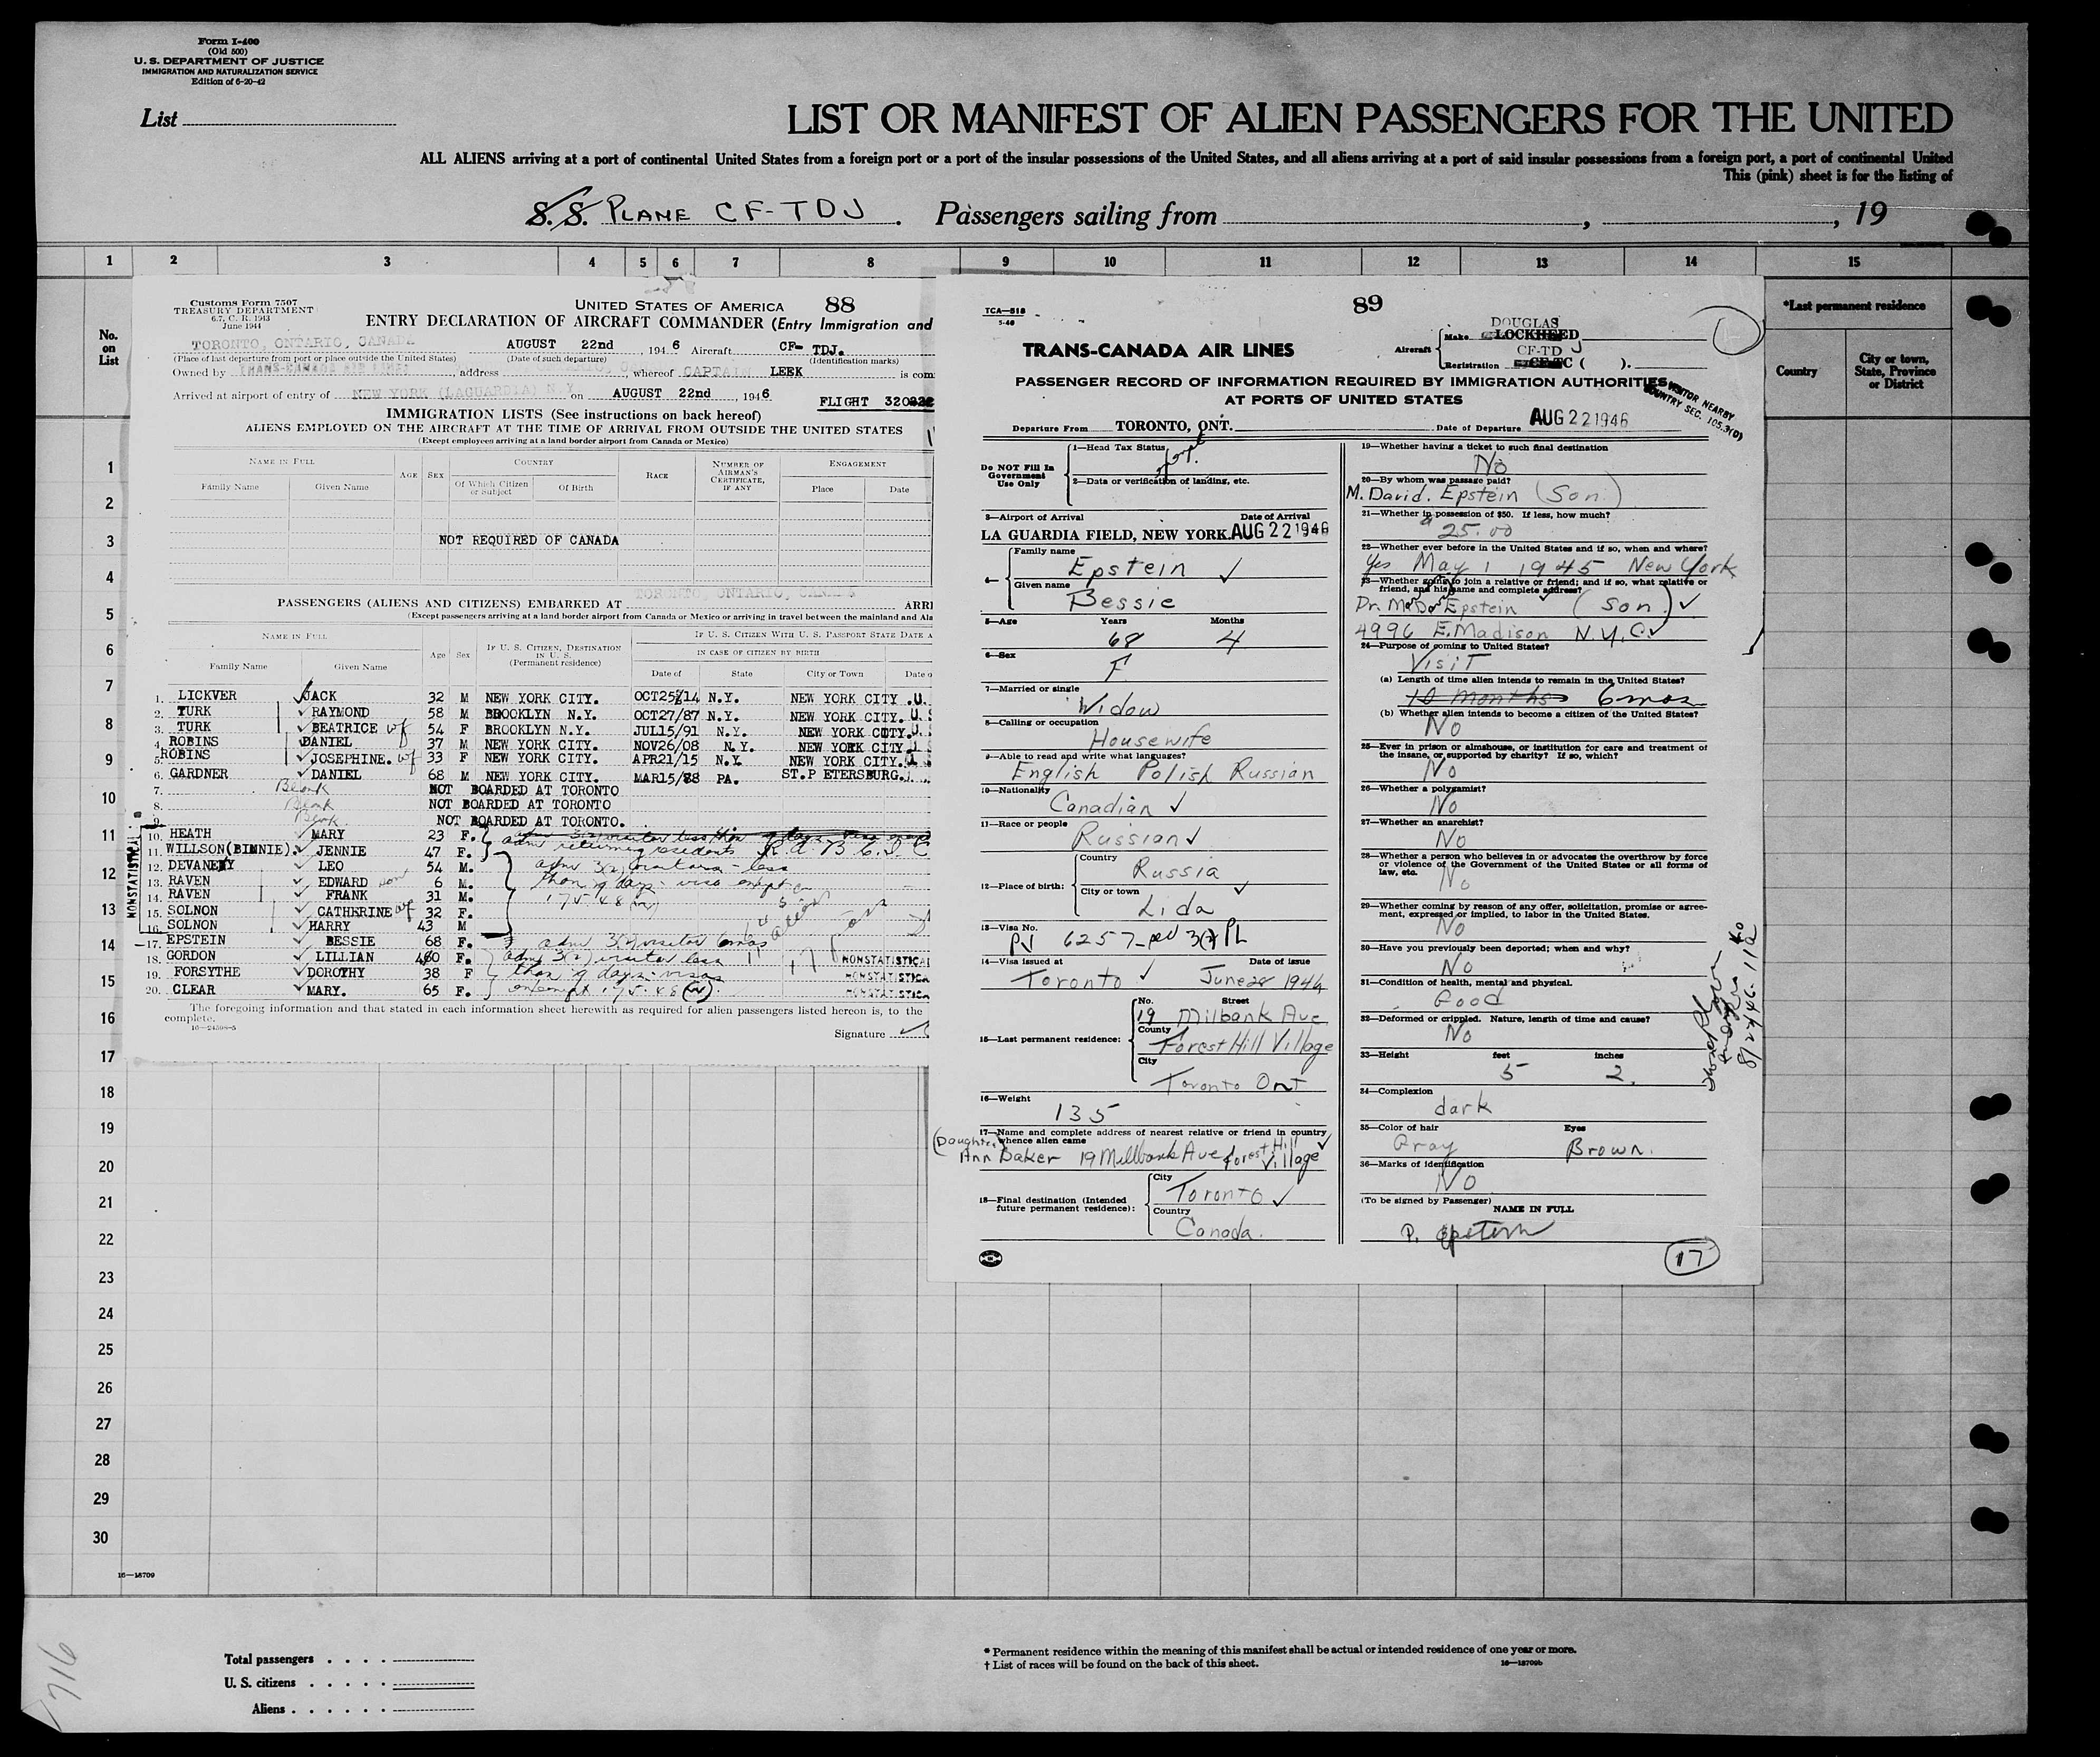 Form I-400
(Old 500)
U. S. DEPARTMENT OF JUSTICE
IMMIGRATION AND NATURALIZATION SERVICE
Edition of 6-20-42
List
LIST OR MANIFEST OF ALIEN PASSENGERS FOR THE UNITED
ALL ALIENS arriving at a port of continental United States from a foreign port or a port of the insular possessions of the United States, and all aliens arriving at a port of said insular possessions from a foreign port, a port of continental United
This (pink) sheet is for the listing of
S. S. PLANE CF-TDJ. Passengers sailing from , , 19
1 2 3 4 5 6 7 8 9 10 11 12 13 14 15
No. on List
*Last permanent residence
Country
City or town, State, Province or District
1
2
3
4
5
6
7
8
9
10
11
12
13
14
15
16
17
18
19
20
21
22
23
24
25
26
27
28
29
30
Customs Form 7507
TREASURY DEPARTMENT
6.7, C. R. 1943
June 1944
UNITED STATES OF AMERICA 88
ENTRY DECLARATION OF AIRCRAFT COMMANDER (Entry Immigration and
TORONTO, ONTARIO, CANADA AUGUST 22nd , 194 6 Aircraft CF- TDJ.
(Place of last departure from port or place outside the United States) (Date of such departure) (Identification marks)
Owned by TRANS-CANADA AIR LINES , address , whereof CAPTAIN LEEK is com
Arrived at airport of entry of NEW YORK (LAGUARDIA) N.Y. on AUGUST 22nd , 194 6
FLIGHT 320
IMMIGRATION LISTS (See instructions on back hereof)
ALIENS EMPLOYED ON THE AIRCRAFT AT THE TIME OF ARRIVAL FROM OUTSIDE THE UNITED STATES
(Except employees arriving at a land border airport from Canada or Mexico)
NAME IN FULL AGE SEX COUNTRY RACE NUMBER OF AIRMAN'S CERTIFICATE, IF ANY ENGAGEMENT
Family Name Given Name Of Which Citizen or Subject Of Birth Place Date
NOT REQUIRED OF CANADA
PASSENGERS (ALIENS AND CITIZENS) EMBARKED AT TORONTO, ONTARIO, CANADA ARRI
(Except passengers arriving at a land border airport from Canada or Mexico or arriving in travel between the mainland and Ala
NAME IN FULL Age Sex IF U. S. CITIZEN, DESTINATION IN U. S. (Permanent residence) IF U. S. CITIZEN WITH U. S. PASSPORT STATE DATE A
IN CASE OF CITIZEN BY BIRTH
Family Name Given Name Date of State City or Town Date o
1. LICKVER JACK 32 M NEW YORK CITY. OCT25/14 N.Y. NEW YORK CITY .U.
2. TURK RAYMOND 58 M BROOKLYN N.Y. OCT27/87 N.Y. NEW YORK CITY. U. S
3. TURK BEATRICE wf 54 F BROOKLYN N.Y. JUL15/91 N.Y. NEW YORK CITY.
4. ROBINS DANIEL 37 M NEW YORK CITY. NOV26/08 N.Y. NEW YORK CITY.
5. ROBINS JOSEPHINE. wf 33 F NEW YORK CITY. APR21/15 N.Y. NEW YORK CITY.
6. GARDNER DANIEL 68 M NEW YORK CITY. MAR15/88 PA. ST.P ETERSBURG.
7. Blank NOT BOARDED AT TORONTO
8. Blank NOT BOARDED AT TORONTO
9. Blank NOT BOARDED AT TORONTO.
NONSTATISTICAL
10. HEATH MARY 23 F.
11. WILLSON(BINNIE). JENNIE 47 F. adm returning residents
12. DEVANEY LEO 54 M. adm 3(2) visitors - less
13. RAVEN EDWARD son 6 M. than 9 days - visa exempt
14. RAVEN FRANK 31 M. 175.48
15. SOLNON CATHERINE wf 32 F.
16. SOLNON HARRY 43 M
17. EPSTEIN BESSIE 68 F. adm 3(2) visitor 6 mos
18. GORDON LILLIAN 60 F. adm 3(2) visitor less NONSTATISTICA
19. FORSYTHE DOROTHY 38 F than 9 days - visas NONSTATISTICA
20. CLEAR MARY. 65 F. 175.48 NONSTATISTICA
The foregoing information and that stated in each information sheet herewith as required for alien passengers listed hereon is, to the
complete.
16-24598-5
Signature
TCA-518
5-46
89
TRANS-CANADA AIR LINES
Aircraft Make DOUGLAS LOCKHEED
Registration CF-TD J CF-TC ( ).
PASSENGER RECORD OF INFORMATION REQUIRED BY IMMIGRATION AUTHORITIES
AT PORTS OF UNITED STATES
VISITOR NEARBY
COUNTRY SEC. 105.3(D)
Departure From TORONTO, ONT. Date of Departure AUG 22 1946
Do NOT Fill In Government Use Only
1—Head Tax Status
2—Data or verification of landing, etc.
3—Airport of Arrival Date of Arrival
LA GUARDIA FIELD, NEW YORK. AUG 22 1946
4—
Family name
Epstein
Given name
Bessie
5—Age Years Months
68 4
6—Sex
F
7—Married or single
Widow
8—Calling or occupation
Housewife
9—Able to read and write what languages?
English Polish Russian
10—Nationality
Canadian
11—Race or people
Russian
12—Place of birth:
Country
Russia
City or town
Lida
13—Visa No.
PV 6257
14—Visa issued at Date of issue
Toronto June 28 1946
15—Last permanent residence:
No. Street
19 Milbank Ave
County
Forest Hill Village
City
Toronto Ont
16—Weight
135
17—Name and complete address of nearest relative or friend in country
whence alien came
(Daughter) Ann Baker 19 Millbank Ave Forest Hill Village
18—Final destination (Intended future permanent residence):
City
Toronto
Country
Canada.
19—Whether having a ticket to such final destination
No
20—By whom was passage paid?
M. David. Epstein (Son)
21—Whether in possession of $50. If less, how much?
25.00
22—Whether ever before in the United States and if so, when and where?
Yes May 1 1945 New York
23—Whether going to join a relative or friend; and if so, what relative or
friend, and his name and complete address?
Dr. M. D. Epstein (Son)
4996 E. Madison N.Y.C.
24—Purpose of coming to United States?
Visit
(a) Length of time alien intends to remain in the United States?
10 months 6 mos
(b) Whether alien intends to become a citizen of the United States?
No
25—Ever in prison or almshouse, or institution for care and treatment of
the insane, or supported by charity? If so, which?
No
26—Whether a polygamist?
No
27—Whether an anarchist?
No
28—Whether a person who believes in or advocates the overthrow by force
or violence of the Government of the United States or all forms of
law, etc.
No
29—Whether coming by reason of any offer, solicitation, promise or agree-
ment, expressed or implied, to labor in the United States.
No
30—Have you previously been deported; when and why?
No
31—Condition of health, mental and physical.
Good
32—Deformed or crippled. Nature, length of time and cause?
No
33—Height feet inches
5 2.
34—Complexion
dark
35—Color of hair Eyes
Gray Brown.
36—Marks of identification
No
(To be signed by Passenger)
NAME IN FULL
17
16—18709
716
Total passengers
U. S. citizens
Aliens
* Permanent residence within the meaning of this manifest shall be actual or intended residence of one year or more.
† List of races will be found on the back of this sheet.
16—18709b